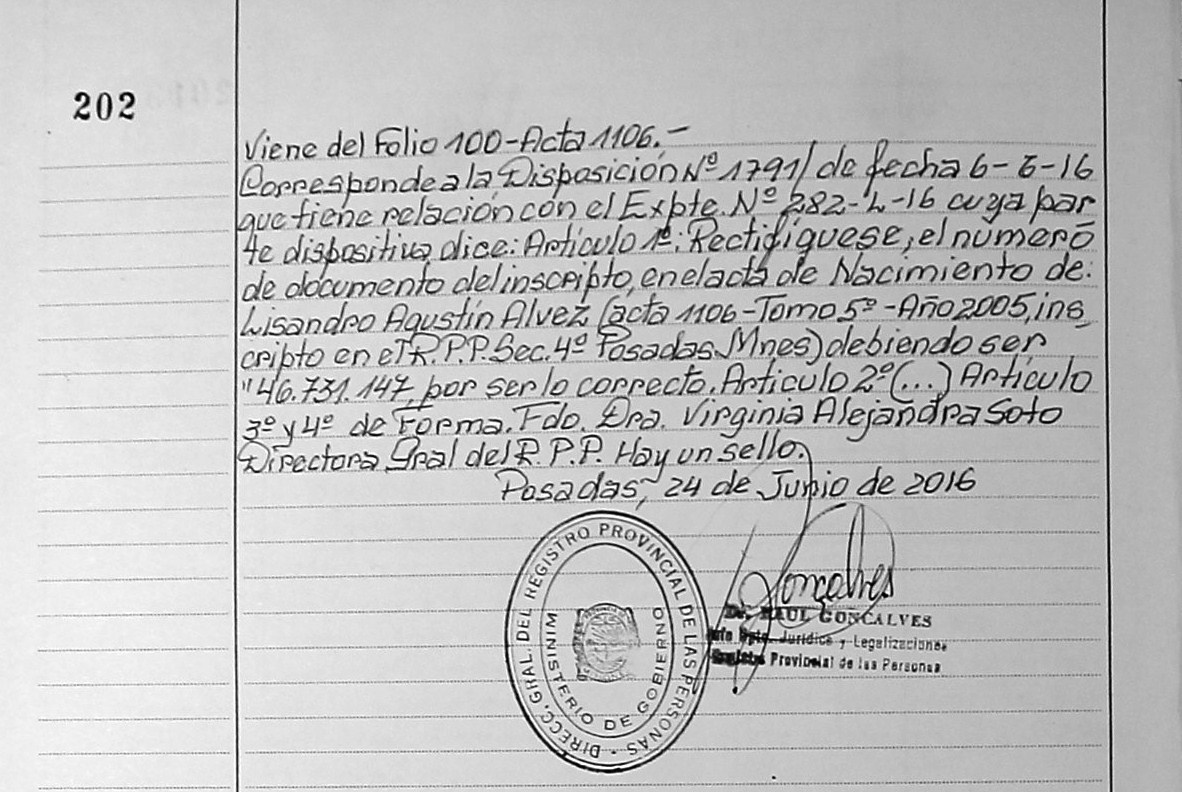 202
Viene del Folio 100-Acta 1106.-
Corresponde a la Disposición Nº 1791/ de fecha 6-6-16
que tiene relación con el Expte. Nº 282-L-16 cuya par
te dispositiva dice: Artículo 1º: Rectifíquese, el número
de documento del inscripto, en el acta de Nacimiento de:
Lisandro Agustín Alvez (acta 1106-Tomo 5º-Año 2005, ins
cripto en el R.P.P. Sec. 4º Posadas. Mnes) debiendo ser
"46.731.147, por ser lo correcto. Articulo 2º (...) Artículo
3º y 4º de Forma. Fdo. Dra. Virginia Alejandra Soto
Directora Gral del R.P.P. Hay un sello.
Posadas, 24 de Junio de 2016
DIRECC. GRAL. DEL REGISTRO PROVINCIAL DE LAS PERSONAS -
MINISTERIO DE GOBIERNO
Gonçalves
Dr. RAUL GONCALVES
Jefe Dpto. Jurídico y Legalizaciones
Registro Provincial de las Personas